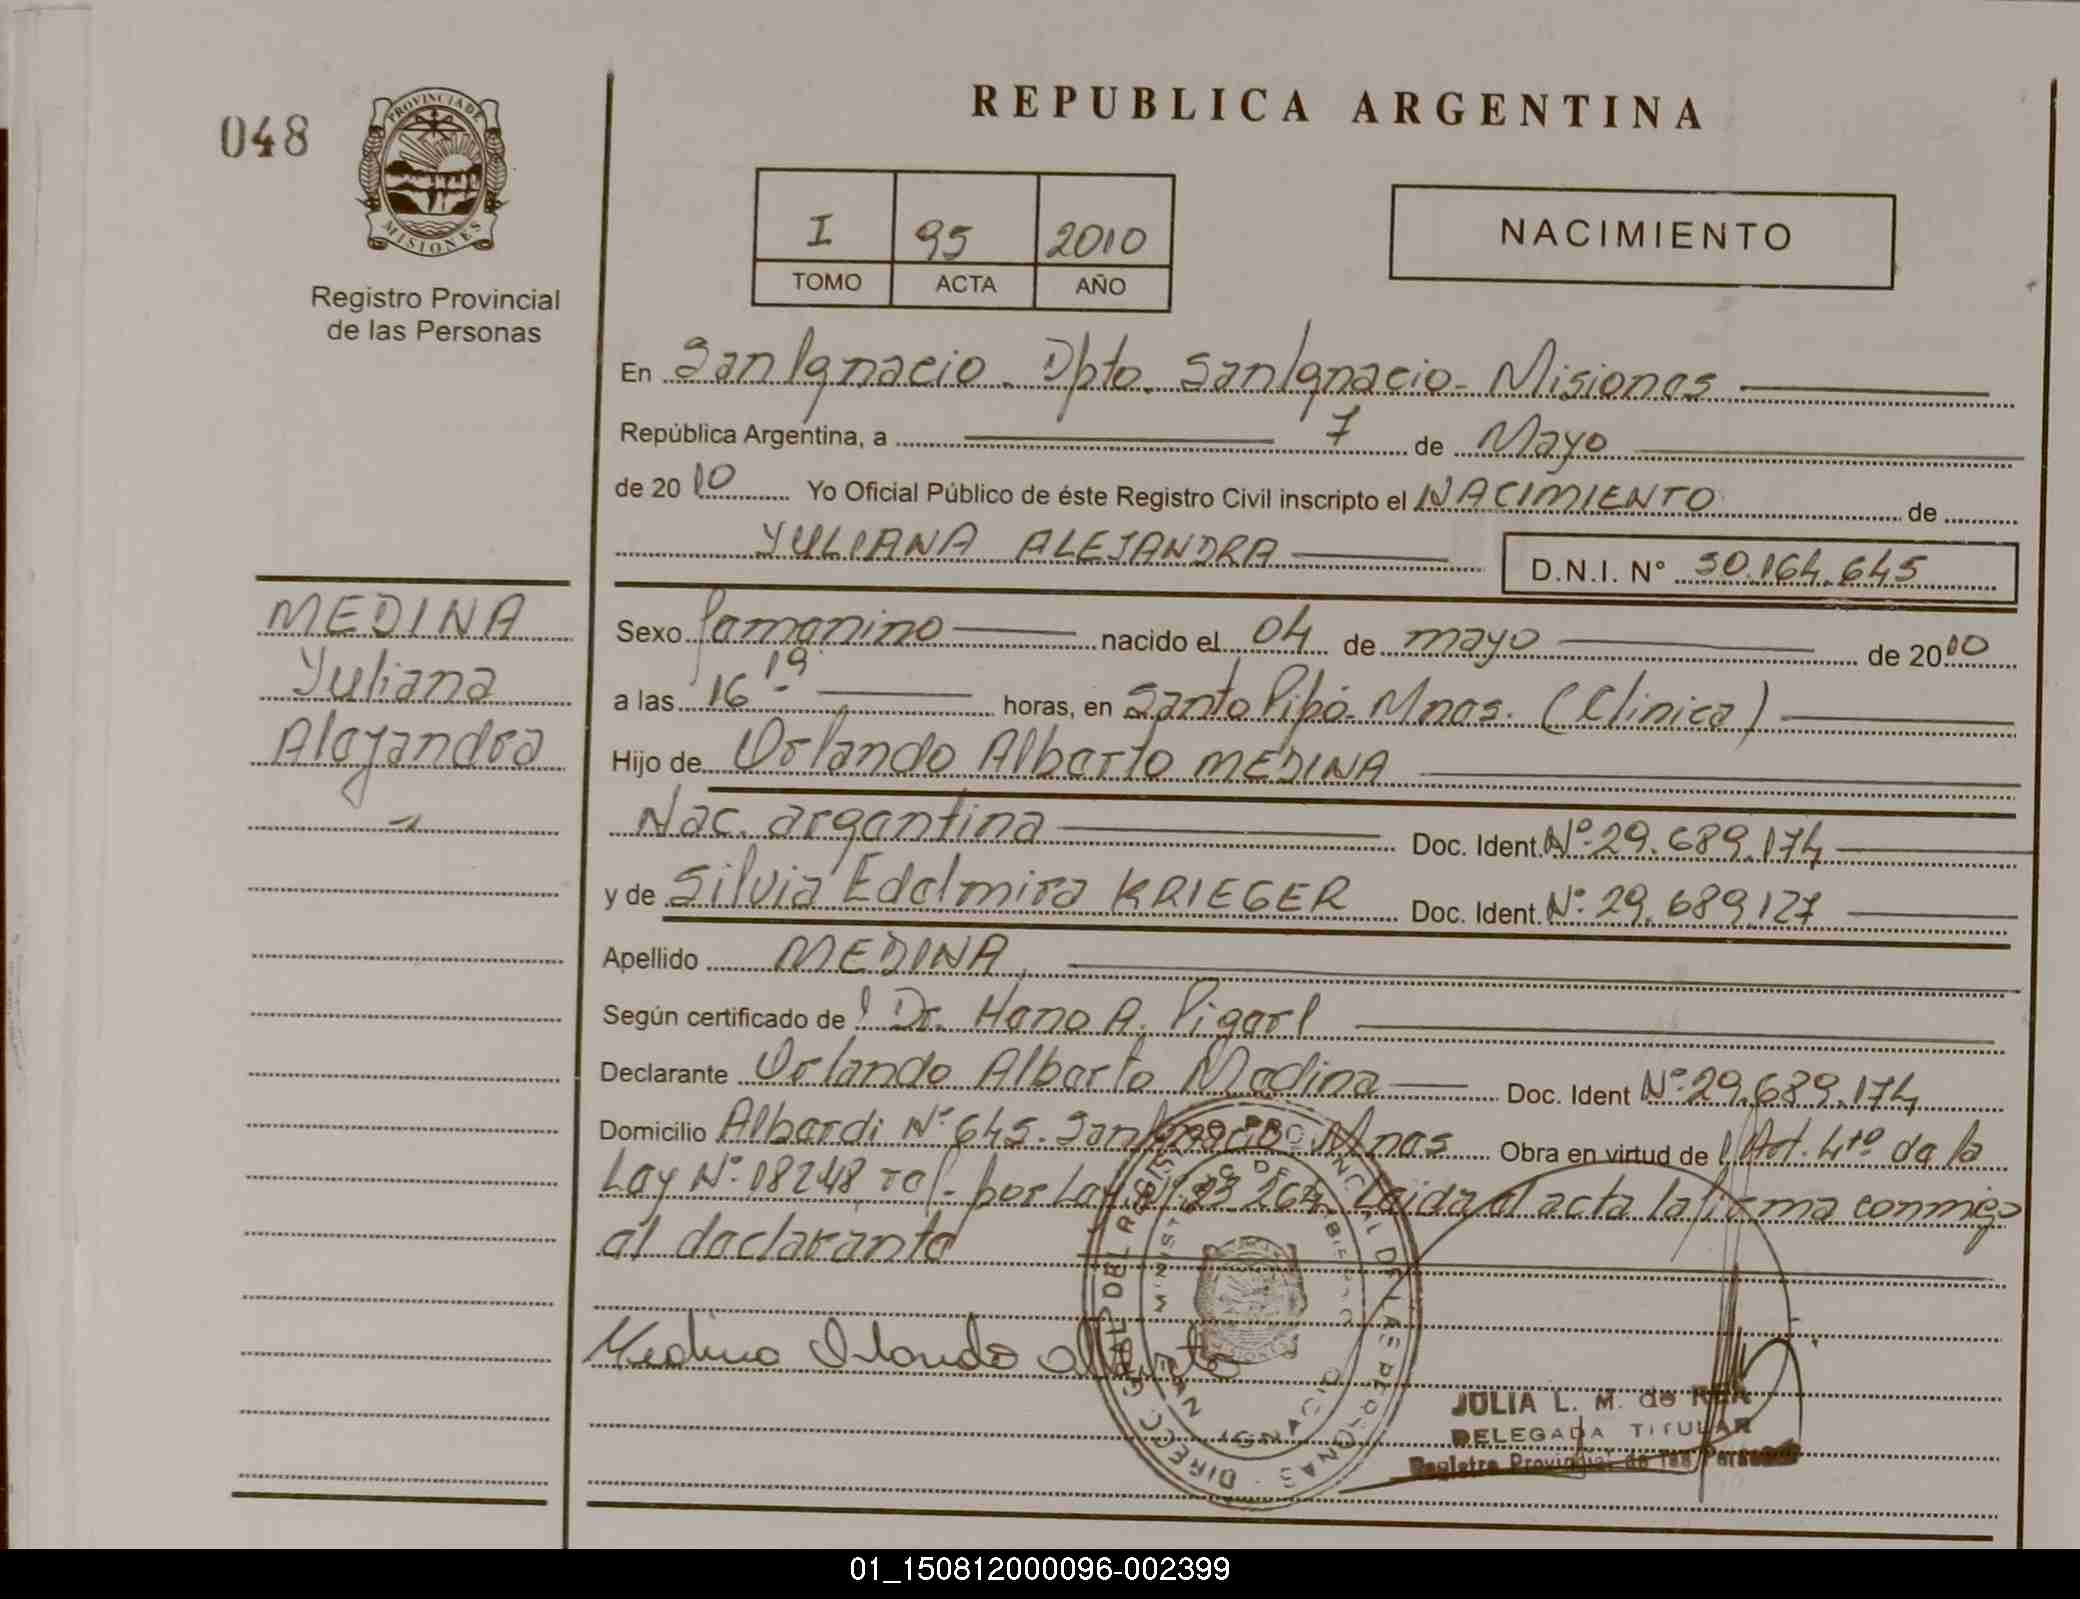 048
PROVINCIA DE
MISIONES
Registro Provincial
de las Personas
REPUBLICA ARGENTINA
I 95 2010
TOMO ACTA AÑO
NACIMIENTO
En San Ignacio. Dpto. San Ignacio - Misiones
República Argentina, a 7 de Mayo
de 20 10 Yo Oficial Público de éste Registro Civil inscripto el NACIMIENTO de
YULIANA ALEJANDRA D.N.I. N° 50.164.645
MEDINA
Yuliana
Alejandra
Sexo femenino nacido el 04 de mayo de 20 10
a las 16 19 horas, en Santo Pipó. Mnes. (Clinica)
Hijo de Orlando Alberto MEDINA
Nac. argentina Doc. Ident. N° 29.689.174
y de Silvia Edelmira KRIEGER Doc. Ident. N° 29.689.127
Apellido MEDINA
Según certificado de Dr. Hano A.
Declarante Orlando Alberto Medina Doc. Ident N° 29.689.174
Domicilio Alberdi N° 645. San Ignacio Mnes Obra en virtud de l Art. 4to de la
Ley N° 18248 ref. por Ley N° 23.264. Leida el acta la firma conmigo
el declarante
Medina Orlando Alberto
DIRECC. GRAL DEL REGISTRO PROVINCIAL DE LAS PERSONAS
SAN IGNACIO
JULIA L. M. de
DELEGADA TITULAR
Registro Provincial de las Personas
01_150812000096-002399